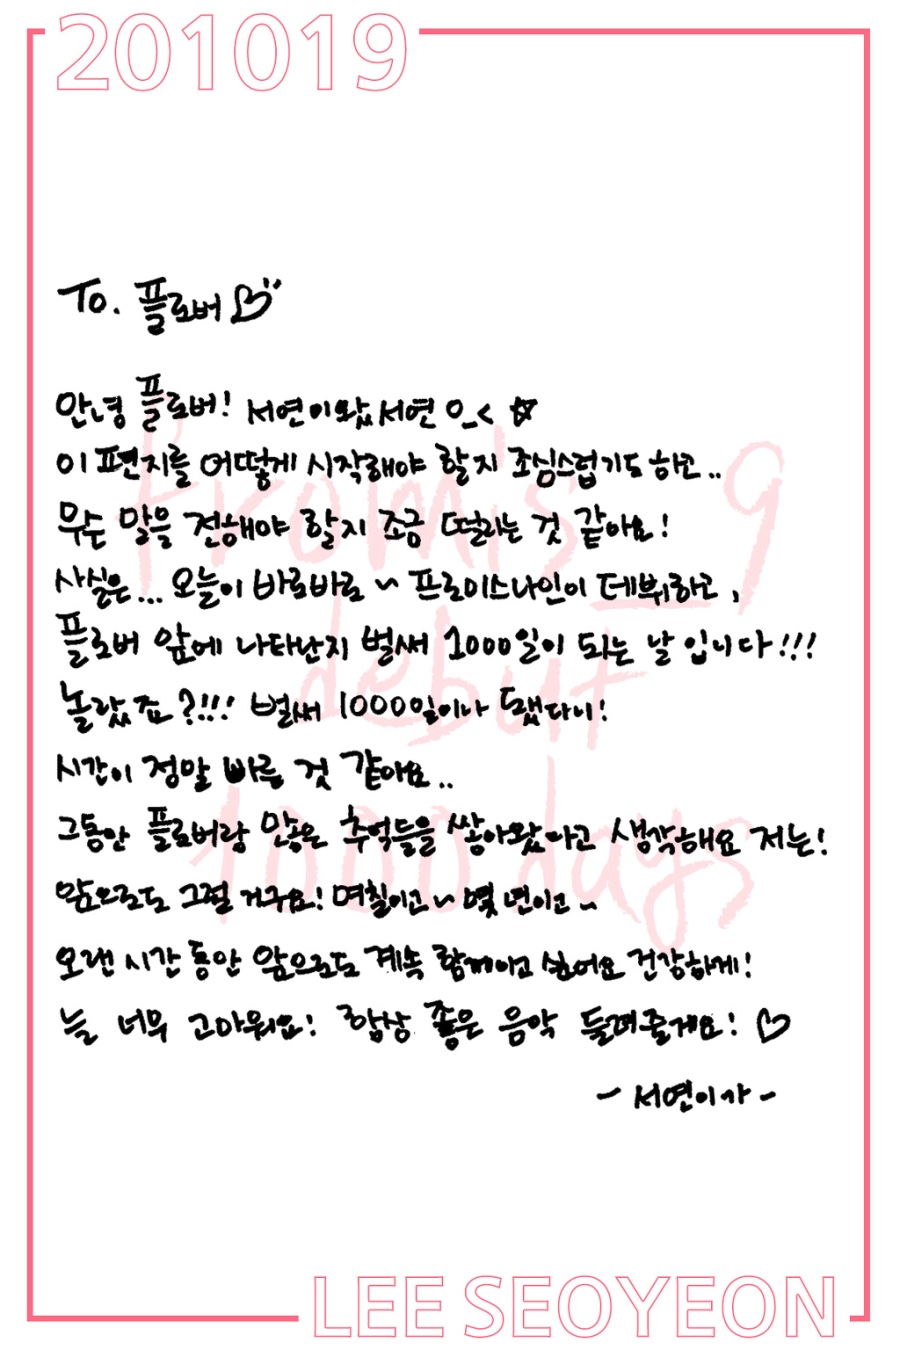 201019
To. 플로버♡
안녕 플로버! 서연이왔서연 O_< ☆
이 편지를 어떻게 시작해야 할지 조심스럽기도 하고..
무슨 말을 전해야 할지 조금 떨리는 것 같아요!
사실은... 오늘이 바로바로~ 프로미스나인이 데뷔하고,
플로버 앞에 나타난지 벌써 1000일이 되는 날 입니다!!!
놀랐죠?!!! 벌써 1000일이나 됐다니!
시간이 정말 빠른 것 같아요..
그동안 플로버랑 많은 추억들을 쌓아왔다고 생각해요 저는!
앞으로도 그럴 거구요! 며칠이고~ 몇 년이고~
오랜 시간 동안 앞으로도 계속 함께이고 싶어요 건강하게!
늘 너무 고마워요! 항상 좋은 음악 들려줄게요! ♡
- 서연이가 -
fromis_9
debut
1000 days
LEE SEOYEON